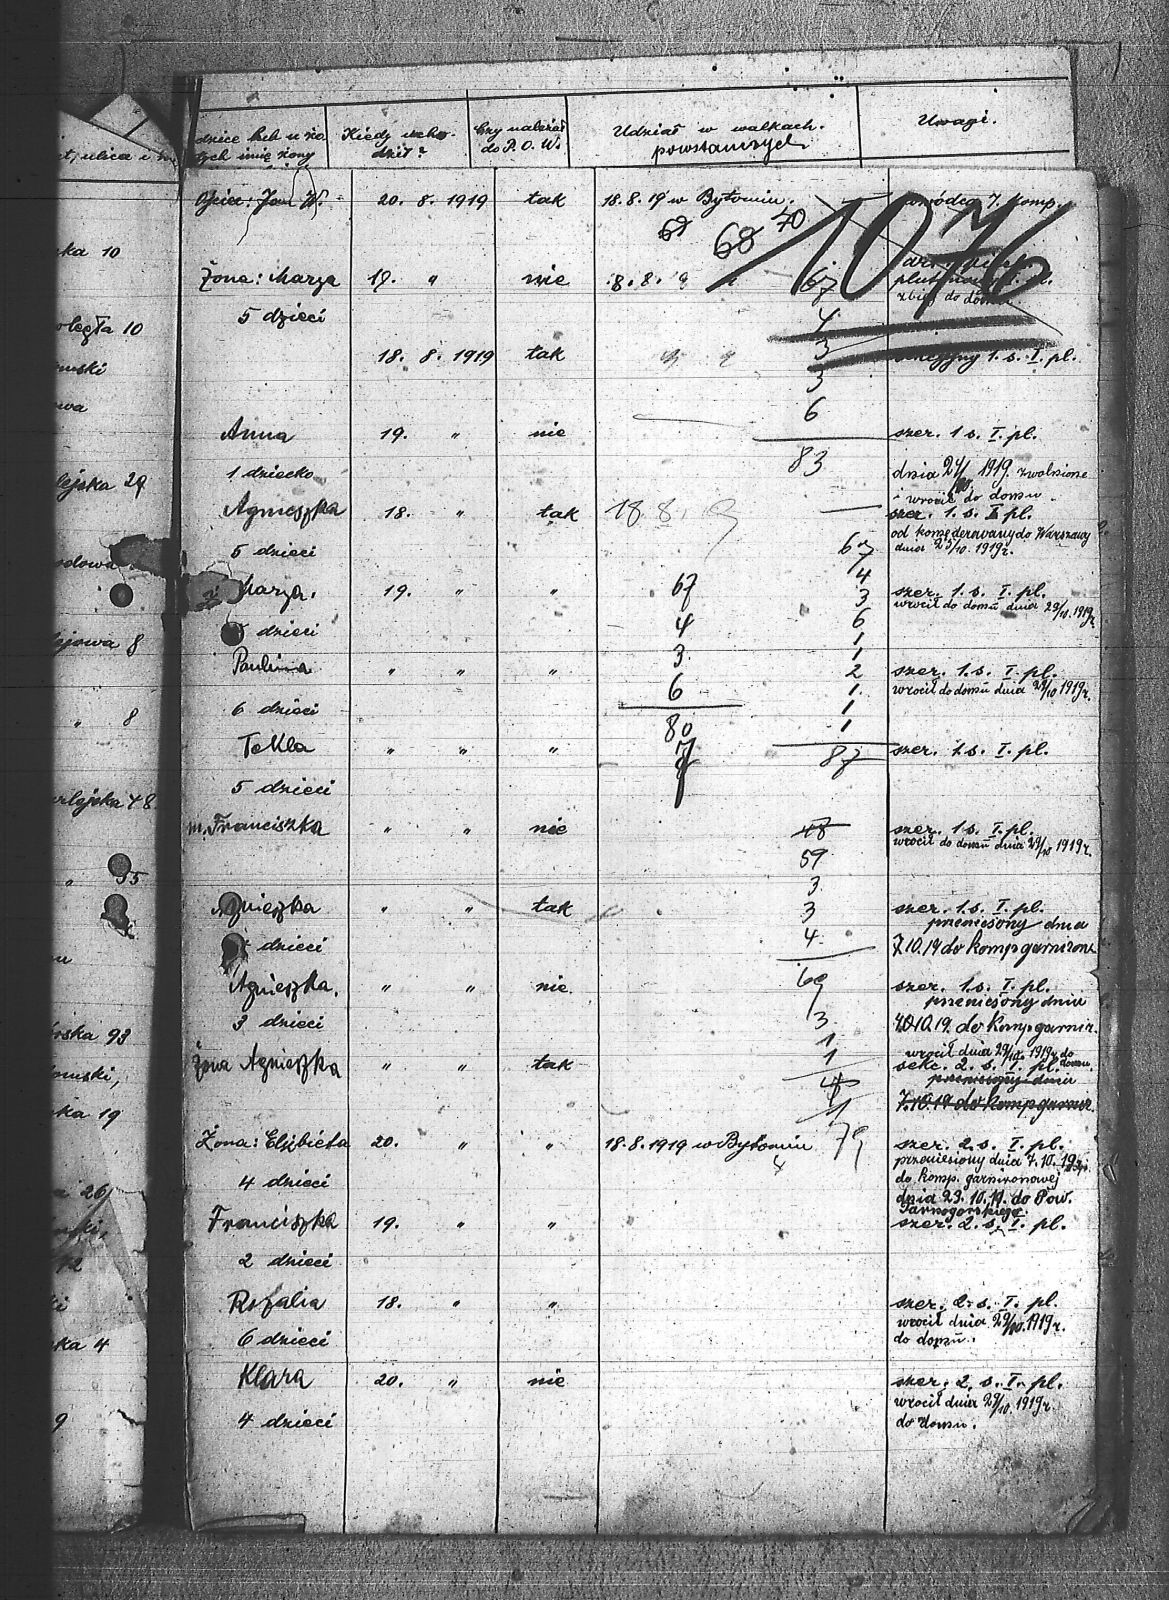 Kiedy ucho-
dził?
Czy należał
do P. O. W.
Udział w walkach
powstańczych
Uwagi.
tych imię żony
Ojciec: Jan W.
20. 8. 1919
tak
18.8.19 w Bytomiu.
7. komp.
68 70
1076
ka 10
Żona: Marya
19. "
nie
8. 8.
67
zbieg do domu
5 dzieci
4
legła 10
18. 8. 1919
tak
3
sekcyjny 1. s. I. pl.
3
6
Anna
19. "
nie
szer. 1 s. I. pl.
83
1 dziecko
dnia 24/ 1919. zwolnione
i wrócił do domu.
lejska 29
Agnieszka
18. "
tak
18 8. 19
szer. 1. s. I pl.
od komenderowany do Warszawy
dnia 25/10. 1919r.
5 dzieci
67
4
Marya.
19. "
"
67
3
szer. 1. s. I. pl.
wrócił do domu dnia 29/10. 1919r.
dzieci
4
6
1
lejowa 8
3.
1
Paulina
" "
"
2
szer. 1. s. I. pl.
wrócił do domu dnia 29/10 1919r.
6
1
6 dzieci
1
" 8
80
1
Tekla
" "
"
7
87
szer. 1. s. I. pl.
5 dzieci
48
m. Franciszka
" "
nie
48
szer. 1 s. I. pl.
wrócił do domu dnia 29/10 1919r.
59
" 95
3
Agnieszka
" "
tak
3
szer. 1. s. I. pl.
przeniesiony dnia
dzieci
4
7.10.19 do komp garnizono
Agnieszka.
" "
nie.
69
szer. 1. s. I. pl.
przeniesiony dnia
3 dzieci
3
7.10.19. do komp garniz.
ska 93
1
wrócił dnia 29/10. 1919r. do
domu.
Żona Agnieszka
" "
tak
1
sekc. 2. s. I. pl.
przeniesiony dnia
7.10.19 do komp garniz.
ka 19
Żona: Elżbieta
20. "
"
18.8.1919 w Bytomiu
79
szer. 2. s. I. pl.
przeniesiony dnia 7. 10. 19r.
4 dzieci
do komp. garnizonowej
dnia 23. 10. 19. do Pow.
Tarnogórskiego.
26
Franciszka
19. "
"
szer. 2. s. I. pl.
2 dzieci
12
Rozalia
18. "
"
szer. 2. s. I. pl.
wrócił dnia 29/10. 1919r.
do domu.
6 dzieci
ka 4
Klara
20. "
nie
szer. 2. s. I. pl.
wrócił dnia 29/10 1919r.
do domu.
4 dzieci
9